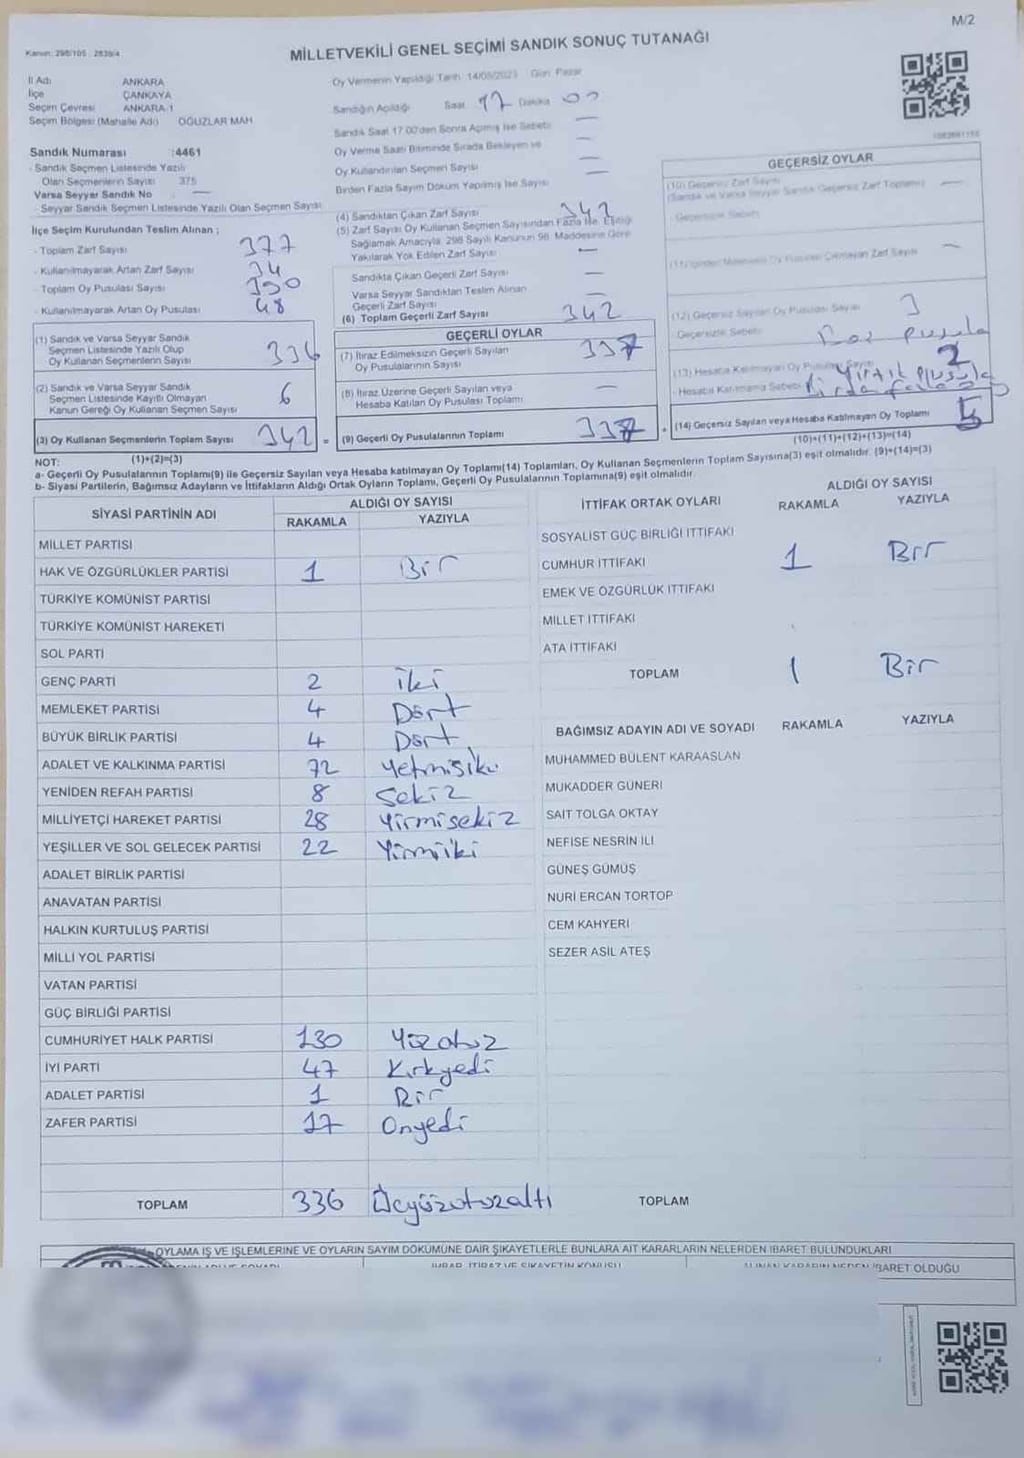 M/2
Kanun: 298/105 , 2839/4
MİLLETVEKİLİ GENEL SEÇİMİ SANDIK SONUÇ TUTANAĞI
İl Adı ANKARA
İlçe ÇANKAYA
Seçim Çevresi ANKARA 1
Seçim Bölgesi (Mahalle Adı) OĞUZLAR MAH
Sandık Numarası :4461
- Sandık Seçmen Listesinde Yazılı
Olan Seçmenlerin Sayısı 375
Varsa Seyyar Sandık No —
- Seyyar Sandık Seçmen Listesinde Yazılı Olan Seçmen Sayısı
İlçe Seçim Kurulundan Teslim Alınan ;
- Toplam Zarf Sayısı 377
- Kullanılmayarak Artan Zarf Sayısı 34
- Toplam Oy Pusulası Sayısı 390
- Kullanılmayarak Artan Oy Pusulası 48
(1) Sandık ve Varsa Seyyar Sandık
Seçmen Listesinde Yazılı Olup
Oy Kullanan Seçmenlerin Sayısı 336
(2) Sandık ve Varsa Seyyar Sandık
Seçmen Listesinde Kayıtlı Olmayan
Kanun Gereği Oy Kullanan Seçmen Sayısı 6
(3) Oy Kullanan Seçmenlerin Toplam Sayısı 342 =
(1)+(2)=(3)
Oy Vermenin Yapıldığı Tarih 14/05/2023 Gün Pazar
Sandığın Açıldığı Saat 17 Dakika 00
Sandık Saat 17.00'den Sonra Açılmış İse Sebebi —
Oy Verme Saati Bitiminde Sırada Bekleyen ve
Oy Kullandırılan Seçmen Sayısı —
Birden Fazla Sayım Döküm Yapılmış İse Sayısı —
(4) Sandıktan Çıkan Zarf Sayısı 342
(5) Zarf Sayısı Oy Kullanan Seçmen Sayısından Fazla İse, Eşitliği
Sağlamak Amacıyla, 298 Sayılı Kanunun 98. Maddesine Göre
Yakılarak Yok Edilen Zarf Sayısı —
Sandıkta Çıkan Geçerli Zarf Sayısı —
Varsa Seyyar Sandıktan Teslim Alınan
Geçerli Zarf Sayısı —
(6) Toplam Geçerli Zarf Sayısı 342
GEÇERLİ OYLAR
(7) İtiraz Edilmeksizin Geçerli Sayılan
Oy Pusulalarının Sayısı 337
(8) İtiraz Üzerine Geçerli Sayılan veya
Hesaba Katılan Oy Pusulası Toplamı —
(9) Geçerli Oy Pusulalarının Toplamı 337 +
GEÇERSİZ OYLAR
(10) Geçersiz Zarf Sayısı
(Sandık ve Varsa Seyyar Sandık Geçersiz Zarf Toplamı) —
- Geçersizlik Sebebi
(12) Geçersiz Sayılan Oy Pusulası Sayısı 3
Geçersizlik Sebebi: Boş pusula
(13) Hesaba Katılmayan Oy Pusulası Sayısı 2
- Hesaba Katılmama Sebebi Yırtık Pusula
(14) Geçersiz Sayılan veya Hesaba Katılmayan Oy Toplamı 5
(10)+(11)+(12)+(13)=(14)
NOT:
a- Geçerli Oy Pusulalarının Toplamı(9) ile Geçersiz Sayılan veya Hesaba katılmayan Oy Toplamı(14) Toplamları, Oy Kullanan Seçmenlerin Toplam Sayısına(3) eşit olmalıdır. (9)+(14)=(3)
b- Siyasi Partilerin, Bağımsız Adayların ve İttifakların Aldığı Ortak Oyların Toplamı, Geçerli Oy Pusulalarının Toplamına(9) eşit olmalıdır.
SİYASİ PARTİNİN ADI ALDIĞI OY SAYISI
RAKAMLA YAZIYLA
MİLLET PARTİSİ
HAK VE ÖZGÜRLÜKLER PARTİSİ 1 Bir
TÜRKİYE KOMÜNİST PARTİSİ
TÜRKİYE KOMÜNİST HAREKETİ
SOL PARTİ
GENÇ PARTİ 2 iki
MEMLEKET PARTİSİ 4 Dört
BÜYÜK BİRLİK PARTİSİ 4 Dört
ADALET VE KALKINMA PARTİSİ 72 Yetmişiki
YENİDEN REFAH PARTİSİ 8 Sekiz
MİLLİYETÇİ HAREKET PARTİSİ 28 Yirmisekiz
YEŞİLLER VE SOL GELECEK PARTİSİ 22 Yirmiiki
ADALET BİRLİK PARTİSİ
ANAVATAN PARTİSİ
HALKIN KURTULUŞ PARTİSİ
MİLLİ YOL PARTİSİ
VATAN PARTİSİ
GÜÇ BİRLİĞİ PARTİSİ
CUMHURİYET HALK PARTİSİ 130 Yüzotuz
İYİ PARTİ 47 Kırkyedi
ADALET PARTİSİ 1 Bir
ZAFER PARTİSİ 17 Onyedi
TOPLAM 336 Üçyüzotuzaltı
İTTİFAK ORTAK OYLARI ALDIĞI OY SAYISI
RAKAMLA YAZIYLA
SOSYALİST GÜÇ BİRLİĞİ İTTİFAKI
CUMHUR İTTİFAKI 1 Bir
EMEK VE ÖZGÜRLÜK İTTİFAKI
MİLLET İTTİFAKI
ATA İTTİFAKI
TOPLAM 1 Bir
BAĞIMSIZ ADAYIN ADI VE SOYADI RAKAMLA YAZIYLA
MUHAMMED BÜLENT KARAASLAN
MUKADDER GÜNERİ
SAİT TOLGA OKTAY
NEFİSE NESRİN İLİ
GÜNEŞ GÜMÜŞ
NURİ ERCAN TORTOP
CEM KAHYERİ
SEZER ASİL ATEŞ
TOPLAM
OYLAMA İŞ VE İŞLEMLERİNE VE OYLARIN SAYIM DÖKÜMÜNE DAİR ŞİKAYETLERLE BUNLARA AİT KARARLARIN NELERDEN İBARET BULUNDUKLARI
İBARET OLDUĞU